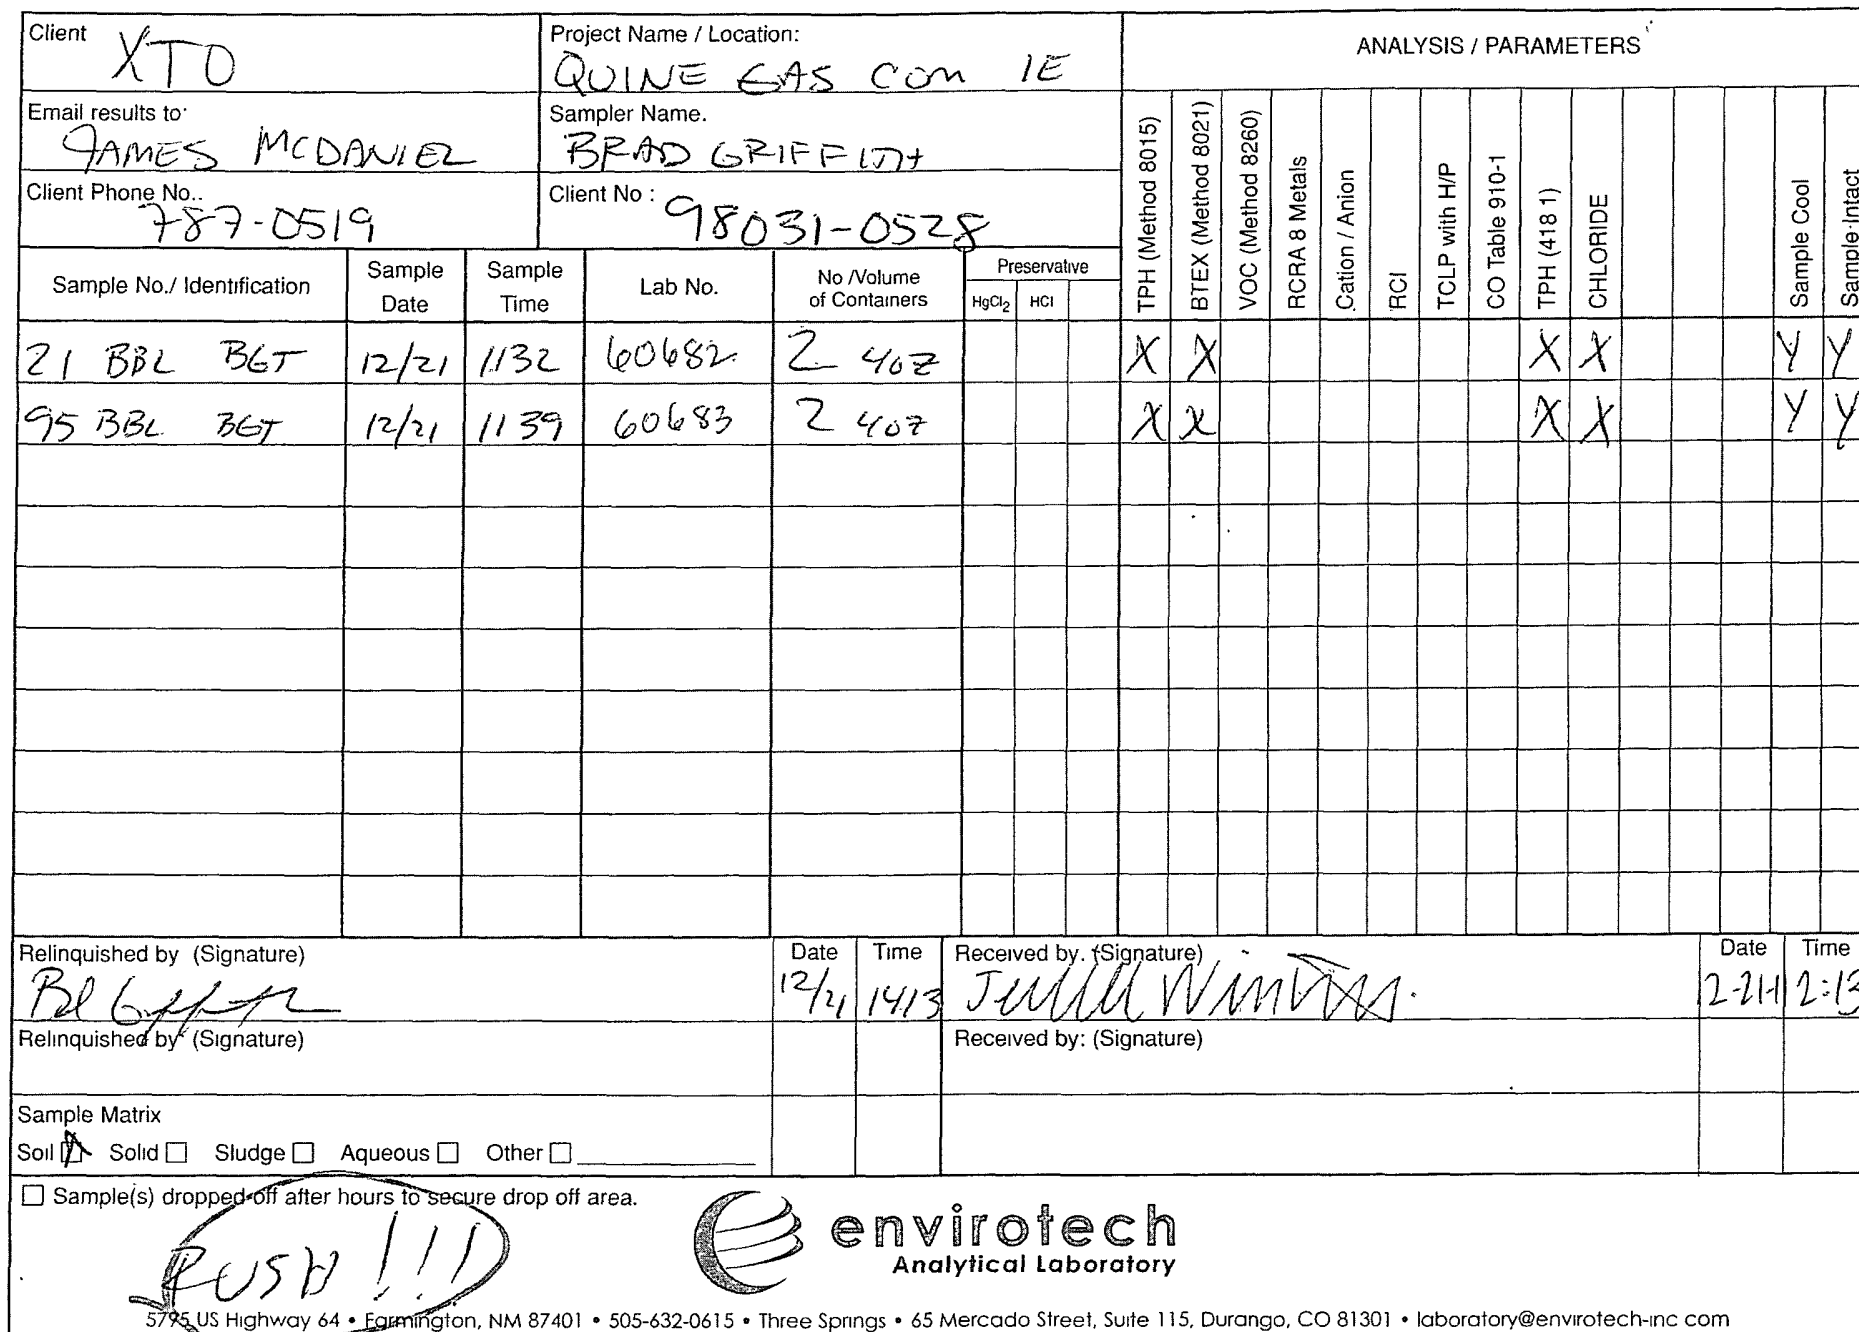 Client XTO
Project Name / Location: QUINE GAS COM 1E
ANALYSIS / PARAMETERS
Email results to: JAMES MCDANIEL
Sampler Name. BRAD GRIFFITH
Client Phone No.. 787-0519
Client No : 98031-0528
Sample No./ Identification
Sample Date
Sample Time
Lab No.
No /Volume of Containers
Preservative
HgCl2 HCl
TPH (Method 8015)
BTEX (Method 8021)
VOC (Method 8260)
RCRA 8 Metals
Cation / Anion
RCI
TCLP with H/P
CO Table 910-1
TPH (418 1)
CHLORIDE
Sample Cool
Sample Intact
21 BBL BGT 12/21 1132 60682 2 4oz X X X X Y Y
95 BBL BGT 12/21 1139 60683 2 4oz X X X X Y Y
Relinquished by (Signature)
Date 12/21
Time 1413
Received by. (Signature)
Date
Time 2:13
Relinquished by (Signature)
Received by: (Signature)
Sample Matrix
Soil Solid Sludge Aqueous Other
Sample(s) dropped off after hours to secure drop off area.
RUSH !!!
envirotech
Analytical Laboratory
5795 US Highway 64 • Farmington, NM 87401 • 505-632-0615 • Three Springs • 65 Mercado Street, Suite 115, Durango, CO 81301 • laboratory@envirotech-inc com